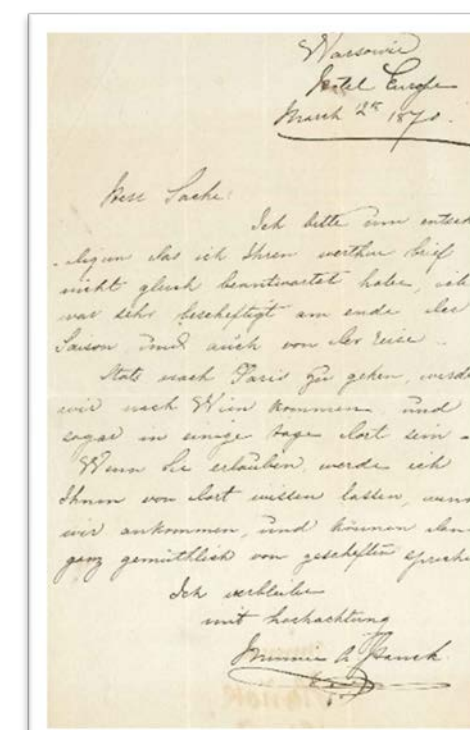 Warsowie
Hotel Europe
March 2n 1870.
Herr Sachs:
Ich bitte um entsch
-ligun das ich Ihren werthen brief
nicht gleich beantwortet habe, ich
war sehr bescheftigt am ende der
Saison und auch von der reise ..
Stats nach Paris zu gehen, werde
wir nach Wien kommen und
sogar in einige tage dort sein -
Wenn Sie erlauben, werde ich
Ihnen von dort wissen lassen, wenn
wir ankommen, und können dan
ganz gemüthlich von gescheften spreche
Ich verbleibe
mit hochachtung
Minnie Hauck